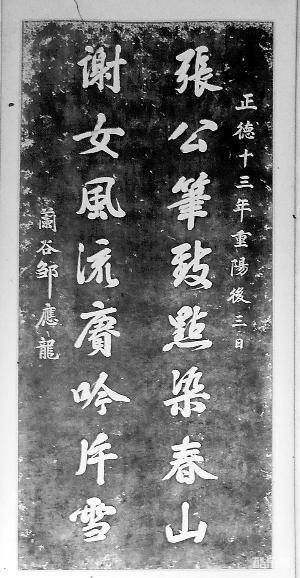 正德十三年重陽後三日
張公筆致點染春山
謝女風流賡吟片雪
蘭谷鄒應龍